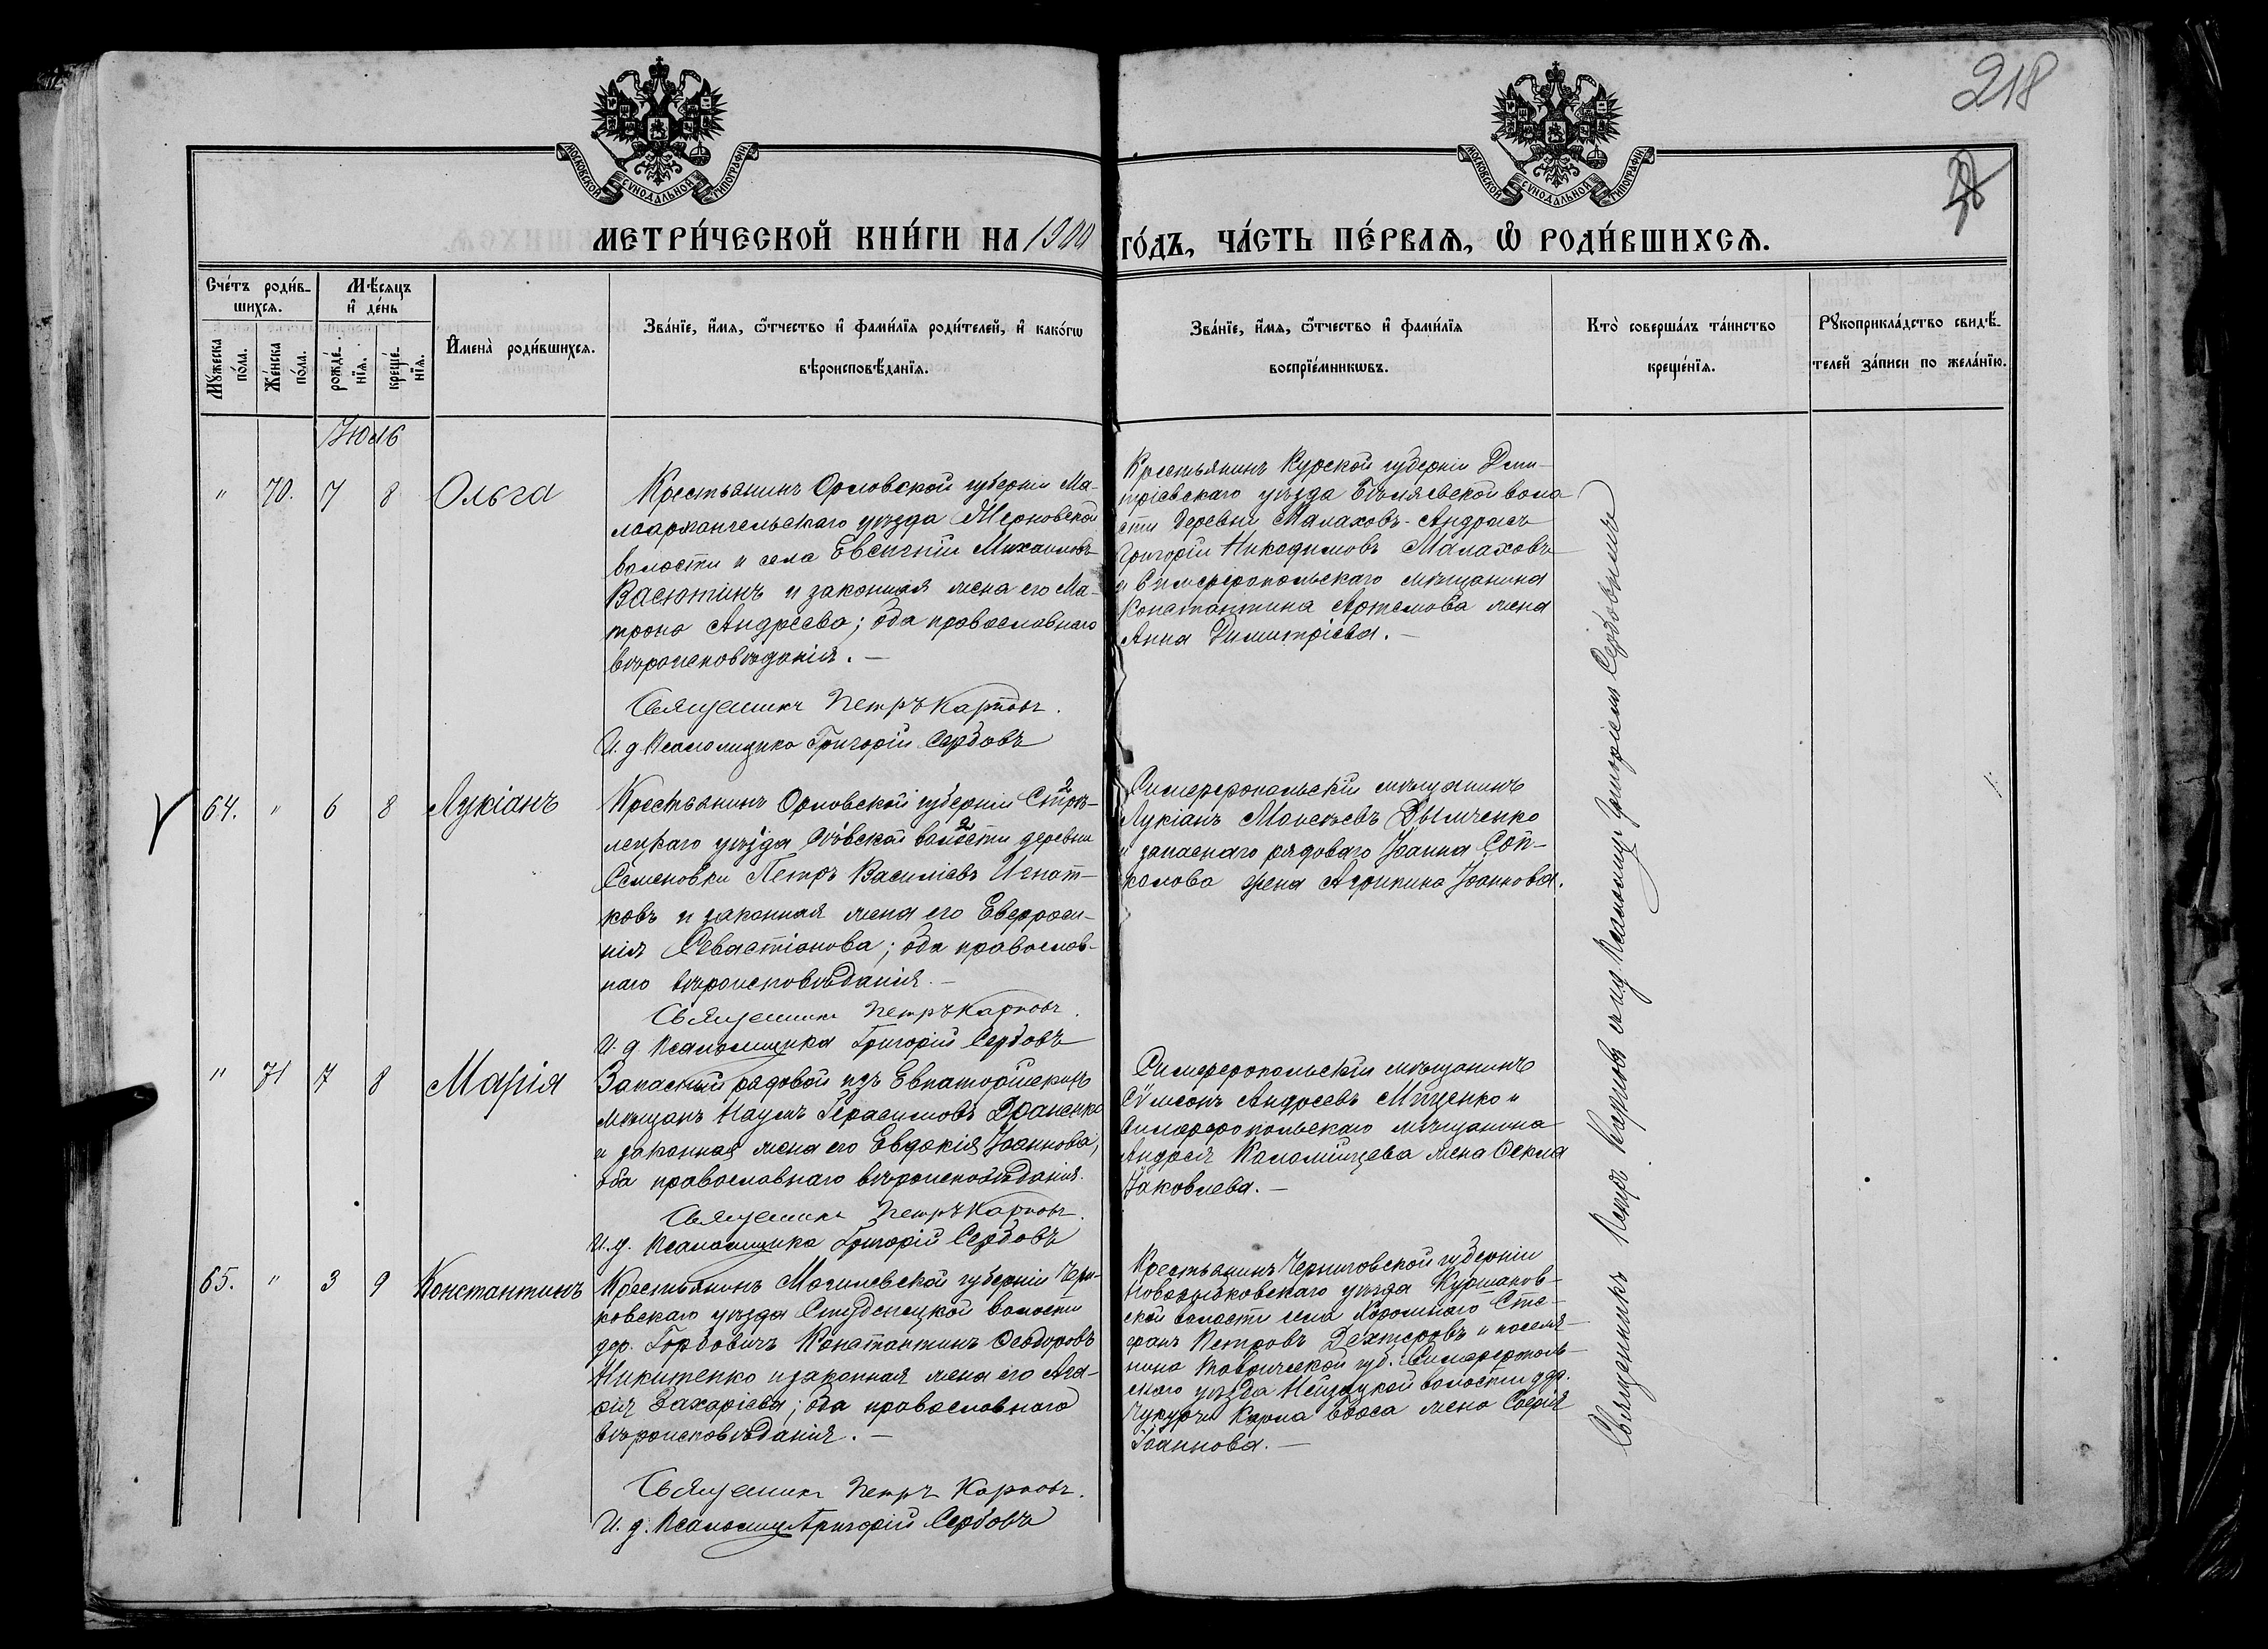 218
МОСКОВСКОЙ СѴНОДАЛЬНОЙ ТИПОГРАФІИ
МОСКОВСКОЙ СѴНОДАЛЬНОЙ ТИПОГРАФІИ
МЕТРИ́ЧЕСКОЙ КНИ́ГИ НА 1900 ГО́ДЪ, ЧА́СТЬ ПЕ́РВАЯ, Ѽ РОДИ́ВШИХСЯ.
Сче́тъ роди́вшихся.
Мѣ́сяцъ и҆ де́нь
Мꙋ́жеска по́ла.
Же́нска по́ла.
рожде́нїѧ.
креще́нїѧ.
И҆мена̀ роди́вшихсѧ.
Зва́нїе, и҆́мѧ, ѻ҆́тчество и҆ фами́лїѧ роди́телей, и҆ како́гѡ
вѣроисповѣ́данїѧ.
Зва́нїе, и҆́мѧ, ѻ҆́тчество и҆ фами́лїѧ
воспрїе́мникѡвъ.
Кто̀ соверша́лъ та́инство
креще́нїѧ.
Рꙋкоприкла́дство свидѣ́-
телей за́писи по жела́нїю.
Іюль
" 70. 7 8 Ольга
Крестьянинъ Орловской губерніи Ма-
лоархангельскаго уѣзда
волости и села Евгеній Михаиловъ
Васютинъ и законная жена его Ма-
трона Андреева; оба православнаго
вѣроисповѣданія. —
Священникъ Петръ Карповъ.
И. д. Псаломщика Григорій Сербовъ
Крестьянинъ Курской губерніи Дми-
тріевскаго уѣзда воло
сти деревни Малаховъ-
Григорій Никодимовъ Малаховъ
и Симферопольскаго мѣщанина
Константина Артемова жена
Анна Димитріева. —
64. " 6 8 Лукіанъ
Крестьянинъ Орловской губерніи
уѣзда волости деревни
Семеновки Петръ Василіевъ Игнат-
ковъ и законная жена его Евфроси-
нія Севастіанова; оба православ-
наго вѣроисповѣданія. —
Священникъ Петръ Карповъ.
И. д. Псаломщика Григорій Сербовъ
Симферопольскій мѣщанинъ
Лукіанъ Моисеевъ Дымченко
и запаснаго рядоваго Іоанна Соп-
колова жена Агрипина Іоаннова.
" 71 7 8 Марія
Запасный рядовой изъ Евпаторійскихъ
мѣщанъ Наумъ Герасимовъ Драненко
и законная жена его Евдокія Іоаннова;
оба православнаго вѣроисповѣданія.
Священникъ Петръ Карповъ.
И. д. Псаломщика Григорій Сербовъ
Симферопольскій мѣщанинъ
Сѷмеонъ Андреевъ Мищенко и
Симферопольскаго мѣщанина
Андрея Коломійцева жена Ѳекла
Іаковлева. —
65. " 3 9 Константинъ
Крестьянинъ Могилевской губерніи Чери-
ковскаго уѣзда Студенецкой волости
дер. Горбовичъ Константинъ Ѳеодоровъ
Никитенко и законная жена его Ага-
ѳія Захаріева; оба православнаго
вѣроисповѣданія. —
Священникъ Петръ Карповъ.
И. д. Псаломщ Григорій Сербовъ
Крестьянинъ Черниговской губерніи
Новозыбковскаго уѣзда
ской волости села Хоромнаго Сте-
фанъ Петровъ Дехтеровъ и поселя-
нина Таврической губ. Симферополь-
скаго уѣзда Нейзацкой волости дер.
Карла жена Софія
Іоаннова. —
Священникъ Петръ Карповъ съ и.д. Псаломщ Григоріем Сербовымъ